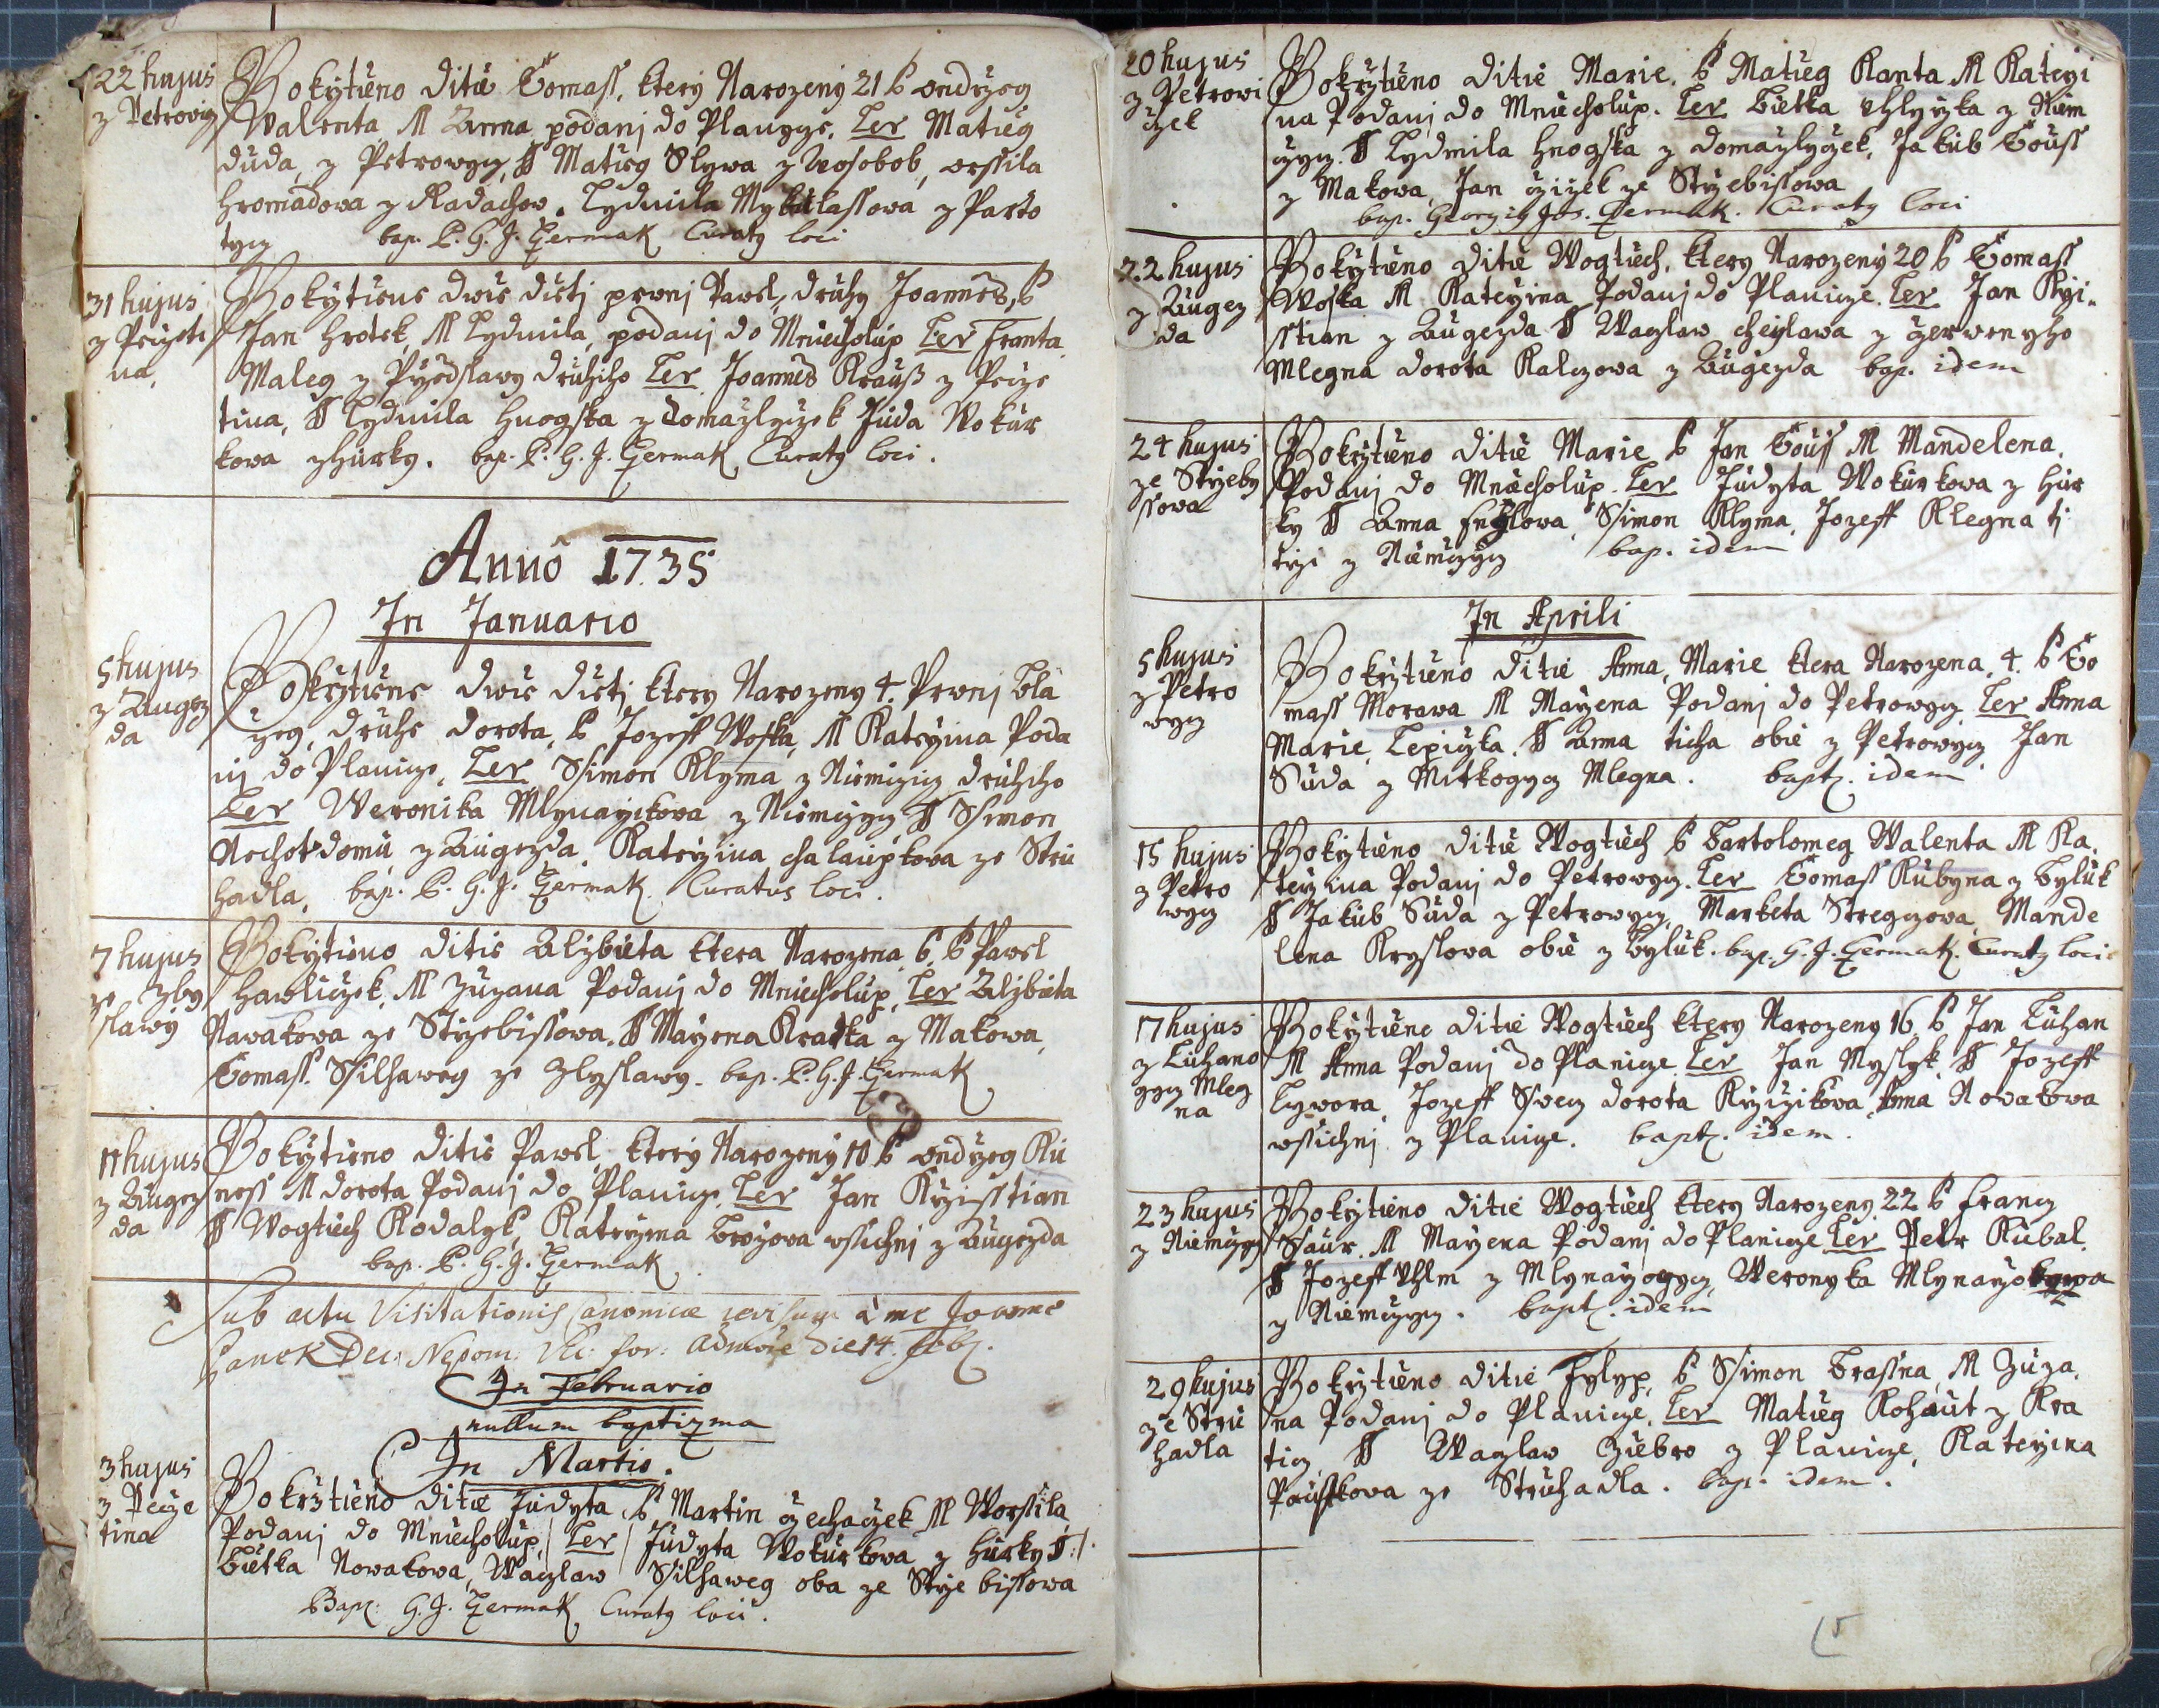 22 hujus
z Petrovig
Pokrztieno Ditie Tomass, ktery Narozeny 21 P ondrzeg
Walenta M Anna podani do Planygo. Ler Matieg
Duda, z Petrowycz, T Matieg Slywa z Nosobob, orssila
Hromadowa z Radachow. Lydmila Mykulassowa z Parto
tycz bap. P. G. J. Czermak Curaty loci
31 hujus
z Przeste
na.
Pokrztiene dwie dieti prwni Pawel, druhy Joannes, P
Jan Hrotek, M Lydmila, podani do Mniecholup Ler Franta
Maleg z Przedslawy druheho Ler Joannes Krauß z Przeze
tina, T Lydmila Hnogska z Domazlyczek Juda Wokur
kowa z Hurky. bap. P. G. J. Czermak Curaty loci.
Anno 1735
In Januario
5 hujus
z Augez
da
Pokrztiene dwie dieti ktery Narozeny 4. Prwni Bla
zeg, druhe Dorota, P Jozeff Woska, M Katerzina Poda
ni do Planicze, Ler Ssimon Klyma z Niemczicz druheho
Ler Weronika Mlynarzikowa z Niemczycz T Ssimon
Nechotdomu z Augezda, Katerzina Chalaupkowa ze Stru
hadla, bap. P. G. J. Czermak Curatus loci.
7 hujus
ze Zby
slawy
Pokrztieno Ditie Alzbieta ktera Narozena 6. P Pawel
Hawliczek, M Zuzana Podani do Mniecholup, Ler Alzbieta
Nawakowa ze Strzebissowa. T Mayrena Kratka z Makowa,
Tomass. Ssilhaweg ze Zbyslawy. bap. P. G. J. Czermak
11 hujus
z Augez
da
Pokrztieno Ditie Pawel, ktery Narozeny 10 P ondrzeg Ku
ness M Dorota Podani do Planicze Ler Jan Krzisstian
T Wogtiech Kodalyk, Katerzina Brozowa wssichni z Augezda
bap. P. G. J. Czermak
Sub actu Visitationis Canonicae revisum à me Joanne
Canek Dec: Nepom: Vic: for: die 14 febr.
In Februario
nullum baptizma
In Martio.
3 hujus
z Przeze
tina
Pokrztieno Ditie Judyta, P Martin Czechaczek M Worssila
Podani do Mniecholup, Ler Judyta Wokurkowa z Hurky T
Bietka Nowakowa, Waczlaw Ssilhaweg oba ze Strzebissowa
Bap. G. J. Czermak Curaty loci.
20 hujus
z Petrowi
czek
Pokrztieno Ditie Marie. P Matieg Kanta M Katerzi
na Podani do Mniecholup. Ler Bietka Uhlyrzka z Niem
czycz. T Lydmila Hnogska z Domazlyczek, Jakub Touss
z Makowa, Jan Czizek ze Strzebissowa
bap. Georgig Jos. Czermak. Curaty loci
22 hujus
z Augez
da
Pokrztieno Ditie Wogtiech, ktery Narozeny 20 P Tomass
Woska M Katerzina Podani do Planicze. Ler Jan Krzi
sstian z Augezda T Waczlaw Cheylawa z Czerwenyho
Mlegna Dorota Kalczowa z Augezda bap. idem
24 hujus
ze Strzeby
ssowa
Pokrztieno Ditie Marie P Jan Touss M Mandelena.
Podani do Mniecholup. Ler Judyta Wokurkowa z Hur
ky T Anna Frzylowa, Ssimon Klyma, Jozeff Klegna ti
trzi z Niemczycz bap. idem
In Aprili
5 hujus
z Petro
wycz
Pokrztieno Ditie Anna, Marie ktera Narozena 4. P To
mass Morawa M Mayrena Podani do Petrowycz Ler Anna
Marie Lepiczka. T Anna Ticha obie z Petrowycz Jan
Suda z Mitkogycz Mlegna. bapt. idem
15 hujus
z Petro
wycz
Pokrztieno Ditie Wogtiech P Bartolomeg Walenta M Ka
terzina Podani do Petrowycz. Ler Tomass Kubyna z Byluk
T Jakub Suda z Petrowycz, Marketa Stregczowa, Mande
lena Kryslowa obie z Byluk. bap. G. J. Czermak. Curaty loci
17 hujus
z Luhano
gycz Mleg
na
Pokrztieno Ditie Wogtiech ktery Narozeny 16 P Jan Luhan
M Anna Podani do Planicze Ler Jan Myslyk T Jozeff
Lywora, Jozeff Sswecz Dorota Krzizikowa, Anna Nowakowa
wssichni z Planicze. bapt. idem.
23 hujus
z Niemczycz
Pokrztieno Ditie Wogtiech ktery Narozeny 22 P Francz
Saur. M Mayrena Podani do Planicze Ler Petr Kubal
T Jozeff Uhlm z Mlynarzogycz, Weronyka Mlynarzokowa
z Niemczycz. bapt. idem
29 hujus
ze Stru
hadla
Pokrztieno Ditie Fylyp, P Ssimon Brassna, M Zuza
na Podani do Planicze, Ler Matieg Kohaut z Kra
ticz, T Waczlaw Ziebro z Planicze, Katerzina
Pauskowa ze Struhadla. bap. idem.